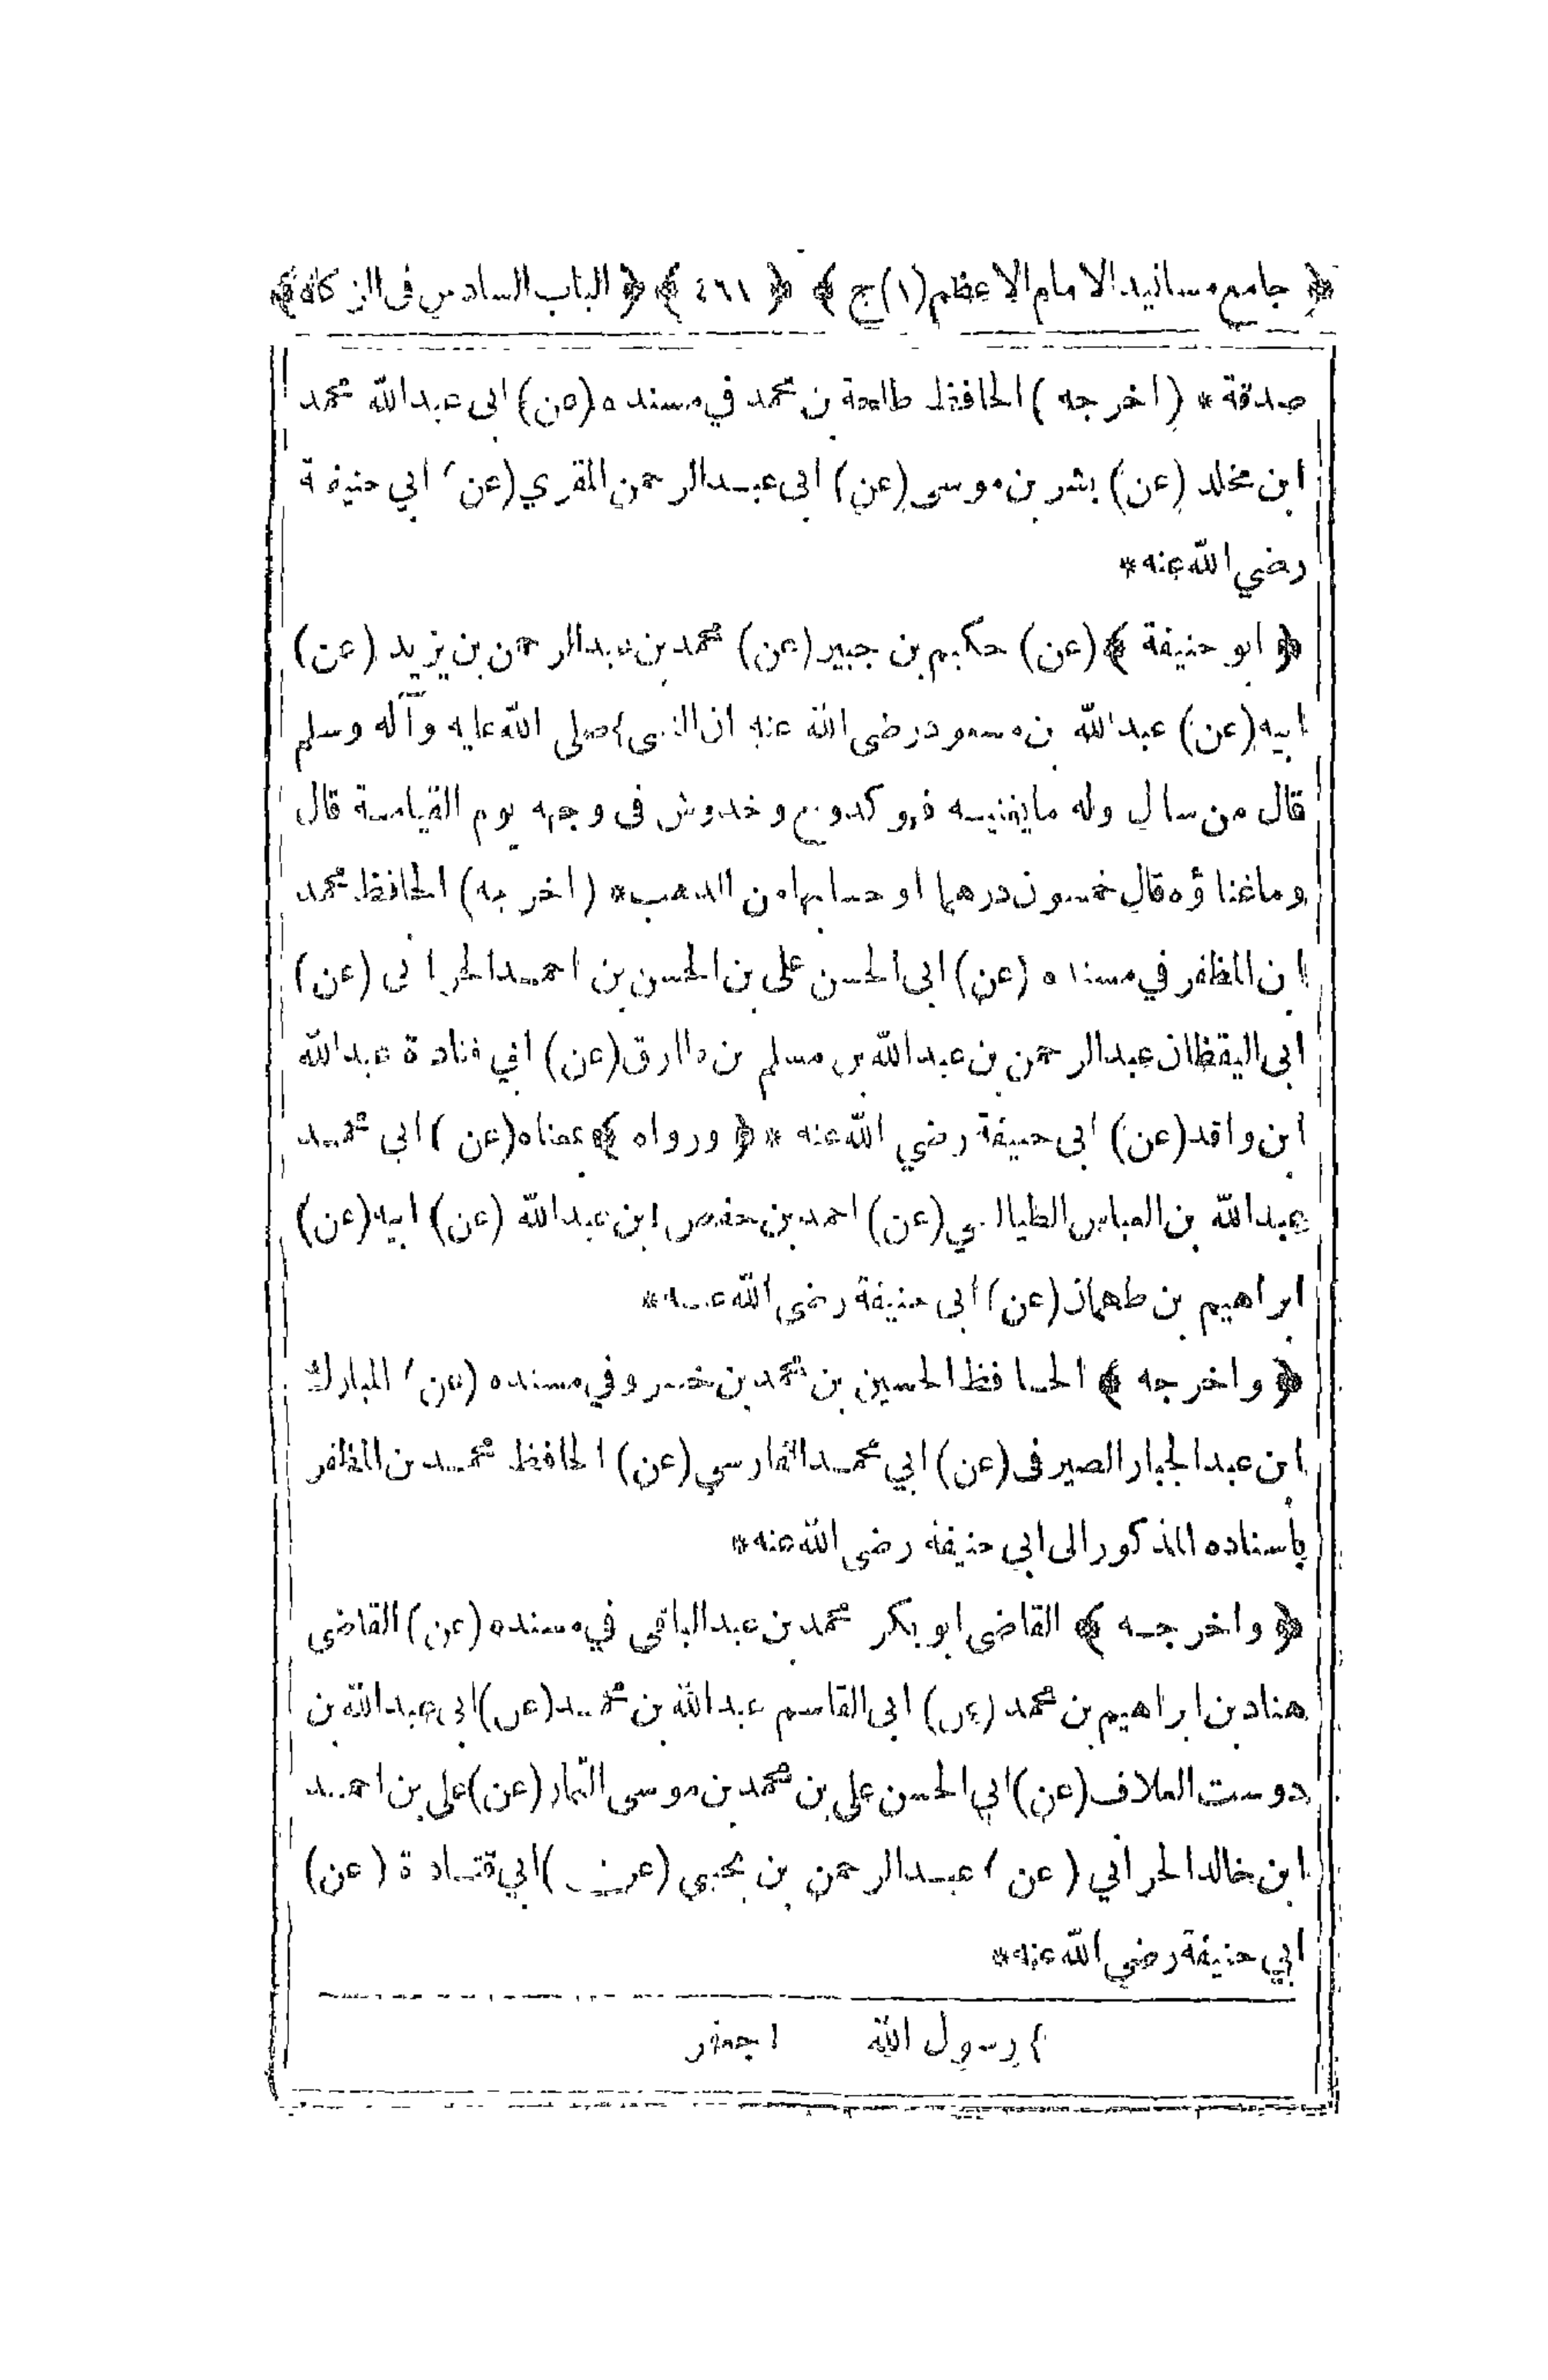 ﴿ جامع مسانيد الامام الاعظم (١) ج ﴾ ﴿ ٤٦١ ﴾ ﴿ الباب السادس في الزكاة ﴾
صدقة * ( اخرجه ) الحافظ طلحة بن محمد في مسنده (عن) ابى عبدالله محمد
ابن مخلد (عن) بشر بن موسى (عن) ابى عبدالرحمن المقري (عن) ابي حنيفة
رضي الله عنه *
﴿ ابو حنيفة ﴾ (عن) حكيم بن جبير (عن) محمد بن عبدالرحمن بن يزيد (عن)
ابيه (عن) عبدالله بن مسعود رضى الله عنه ان النبى ٢ صلى الله عليه وآله وسلم
قال من سال وله مايغنيه فهو كدوح وخدوش فى وجهه يوم القيامة قال
وماغناؤه قال خمسون درهما او حسابها من الذهب * ( اخرجه ) الحافظ محمد
ابن المظفر في مسنده (عن) ابى الحسن على بن الحسن بن احمد الحرانى (عن)
ابى اليقظان عبدالرحمن بن عبدالله بن مسلم بن (عن) ابي قتادة عبدالله
ابن واقد (عن) ابى حنيفة رضي الله عنه * ﴿ ورواه ﴾ بمعناه (عن) ابي محمد
عبدالله بن العباس الطيالسي (عن) احمد بن حفص ابن عبدالله (عن) ابيه (عن)
ابراهيم بن طهمان (عن) ابى حنيفة رضى الله عنه *
﴿ واخرجه ﴾ الحافظ الحسين بن محمد بن خسرو في مسنده (عن) المبارك
ابن عبدالجبار الصيرفى (عن) ابي محمد الفارسي (عن) الحافظ محمد بن المظفر
بأسناده المذكور الى ابي حنيفة رضى الله عنه *
﴿ واخرجه ﴾ القاضى ابو بكر محمد بن عبدالباقى في مسنده (عن) القاضى
هناد بن ابراهيم بن محمد (عن) ابى القاسم عبدالله بن محمد (عن) ابى عبدالله بن
دوست العلاف (عن) ابي الحسن علي بن محمد بن موسى التمار (عن) علي بن احمد
ابن خالد الحراني (عن) عبدالرحمن بن يحيى (عن) ابي قتادة (عن)
ابي حنيفة رضي الله عنه *
٢ رسول الله ١ جعفر